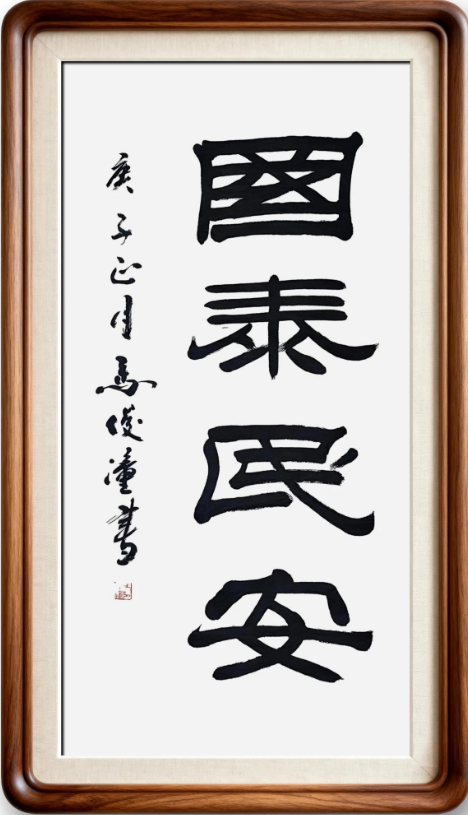 國泰民安
庚子正月馬俊潼書